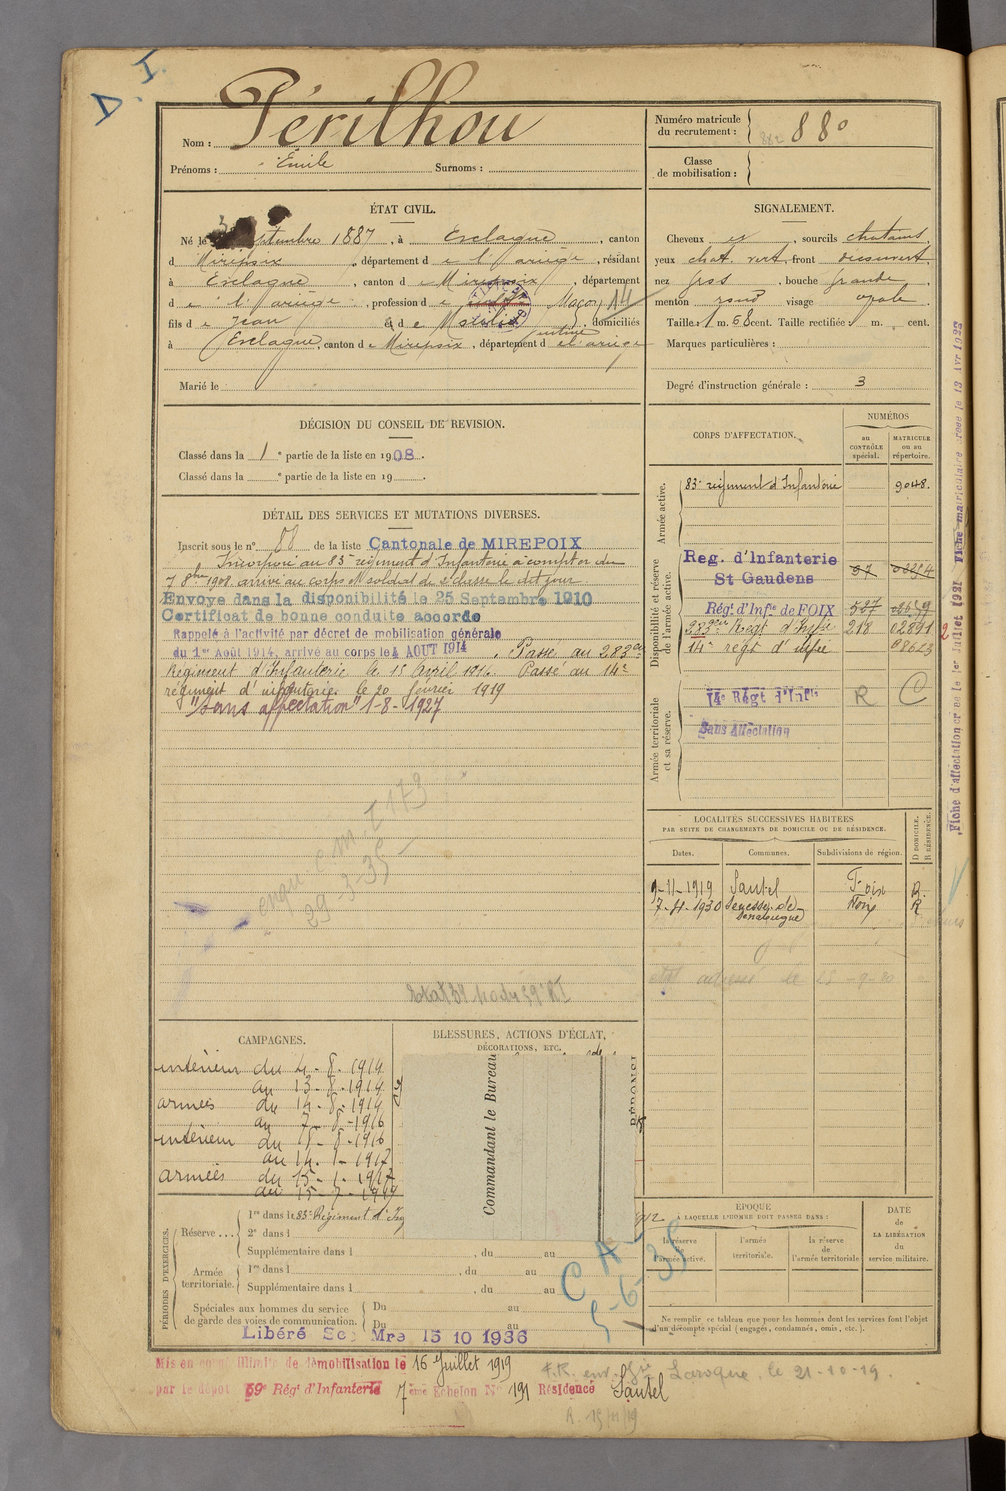 D. I.
Nom : Périlhou
Prénoms : Emile Surnoms :
Numéro matricule du recrutement : 882 880
Classe de mobilisation :
ÉTAT CIVIL.
Né le septembre 1887, à Esclagne, canton
d Mirepoix, département de l'ariège, résidant
à Esclagne, canton de Mirepoix, département
de l'ariège, profession de Maçon 14
fils de Jean et de domiciliés
à Esclagne, canton de Mirepoix, département de l'ariège
Marié le
SIGNALEMENT.
Cheveux, sourcils chatains,
yeux chat. vert, front découvert,
nez gros, bouche grande,
menton rond visage ovale
Taille : 1 m. 68 cent. Taille rectifiée : m. cent.
Marques particulières :
Degré d'instruction générale : 3
DÉCISION DU CONSEIL DE REVISION.
Classé dans la 1e partie de la liste en 1908.
Classé dans la e partie de la liste en 19 .
DÉTAIL DES SERVICES ET MUTATIONS DIVERSES.
Inscrit sous le n° 88 de la liste Cantonale de MIREPOIX
Incorporé au 83me régiment d'Infanterie à compter du
7 8bre 1908 arrivé au corps et soldat de 2e classe le dit jour.
Envoyé dans la disponibilité le 25 Septembre 1910
Certificat de bonne conduite accordé
Rappelé à l'activité par décret de mobilisation générale
du 1er Août 1914, arrivé au corps le 4 AOUT 1914. Passé au 283e
Régiment d'Infanterie le 15 Avril 1916. Passé au 14e
régiment d'infanterie le 20 février 1919
"Sans affectation" 1-8-1927
29-3-35
CORPS D'AFFECTATION.
NUMÉROS
au CONTRÔLE spécial.
MATRICULE ou au répertoire.
Armée active.
83e régiment d'Infanterie 9048.
Disponibilité et réserve de l'armée active.
Reg. d'Infanterie
St Gaudens
Régt. d'Infie de FOIX 527
283ème Régt d'Infie 218 02891
14e régt d'infie 08613
Armée territoriale et sa réserve.
14e Régt d'Infie R C
Sans Affectation
Fiche d'affectation créée le 1er Juillet 1921 Fiche matriculaire créée le 13 Avr 1923
LOCALITÉS SUCCESSIVES HABITÉES
PAR SUITE DE CHANGEMENTS DE DOMICILE OU DE RÉSIDENCE.
Dates. Communes. Subdivisions de région. D DOMICILE. R RÉSIDENCE.
9-11-1919 Sautel Foix R.
7-4-1930 Foix R
CAMPAGNES.
intérieur du 4-8-1914
au 13-8-1914
armées du 14-8-1914
au 7-8-1916
intérieur du 18-8-1916
au 14-1-1917
armées du 15-1-1917
BLESSURES, ACTIONS D'ÉCLAT,
DÉCORATIONS, ETC.
Commandant le Bureau
PÉRIODES D'EXERCICES.
Réserve ... 1re dans le 83e Régiment d'Inf
2e dans l
Supplémentaire dans l , du au
Armée territoriale. 1re dans l , du au
Supplémentaire dans l , du au
Spéciales aux hommes du service de garde des voies de communication. Du au
Du au
C A
5-6-35
ÉPOQUE
À LAQUELLE L'HOMME DOIT PASSER DANS :
la réserve de l'armée active.
l'armée territoriale.
la réserve de l'armée territoriale
DATE de LA LIBÉRATION du service militaire.
Ne remplir ce tableau que pour les hommes dont les services font l'objet
d'un décompte spécial (engagés, condamnés, omis, etc.).
Libéré Ser Mre 15 10 1936
Mis en congé illimité de démobilisation le 16 Juillet 1919
par le dépôt 59e Régt d'Infanterie 7ème Echelon N° 191 Résidence Sautel
Laroque, le 21-10-19.